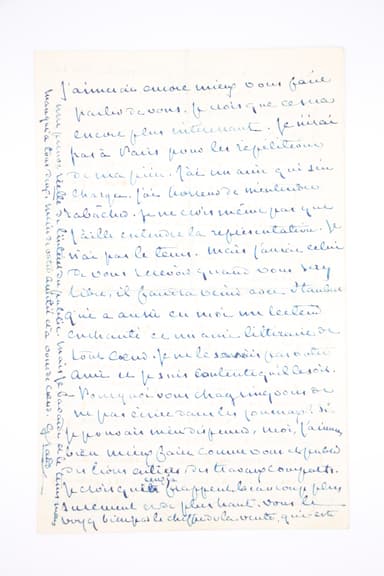 J'aimerais encore mieux vous faire
parler de vous. Je crois que ce sera
encore plus intéressant. Je n'irai
pas à Paris pour les répétitions
de ma pièce. J'ai un ami qui s'en
charge. J'ai horreur de m'entendre
rabacher. Je ne crois même pas que
j'aille entendre la représentation. Je
n'ai pas le tems. Mais j'aurai celui
de vous recevoir quand vous serez
libre, il faudra venir avec
qui a aussi en moi un lecteur
enchanté et un ami littéraire de
tout cœur. Je ne le savais pas votre
ami et je suis contente qu'il le soit.
Pourquoi vous chagriner donc de
ne pas écrire dans les journaux? Si
je pouvais m'en dispenser, moi, j'aimerais
bien mieux faire comme vous et publier
des livres entiers, des travaux complets.
Je crois qu'ils frappent beaucoup plus
surement et de plus haut. Vous le
voyez bien par le chiffre de la vente, qui est
une preuve réelle de l'intérêt du public. Mais je bavarde et le tems me
manque à tous deux. Merci de votre amitié et à vous de cœur.